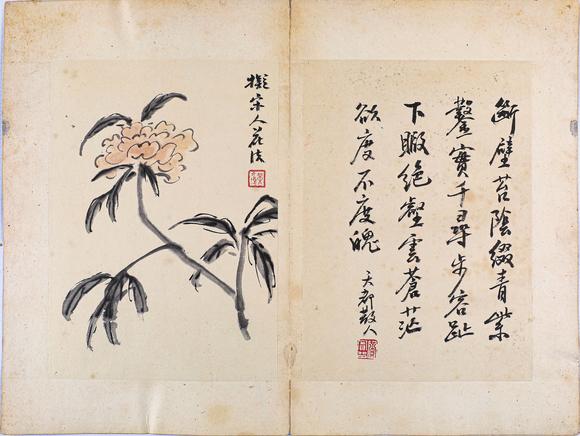 斷壁苔陰綴青紫
鑿寶千尋步容趾
下瞰絕壑雲蒼茫
欲度不度愧
天都散人
擬宋人花法